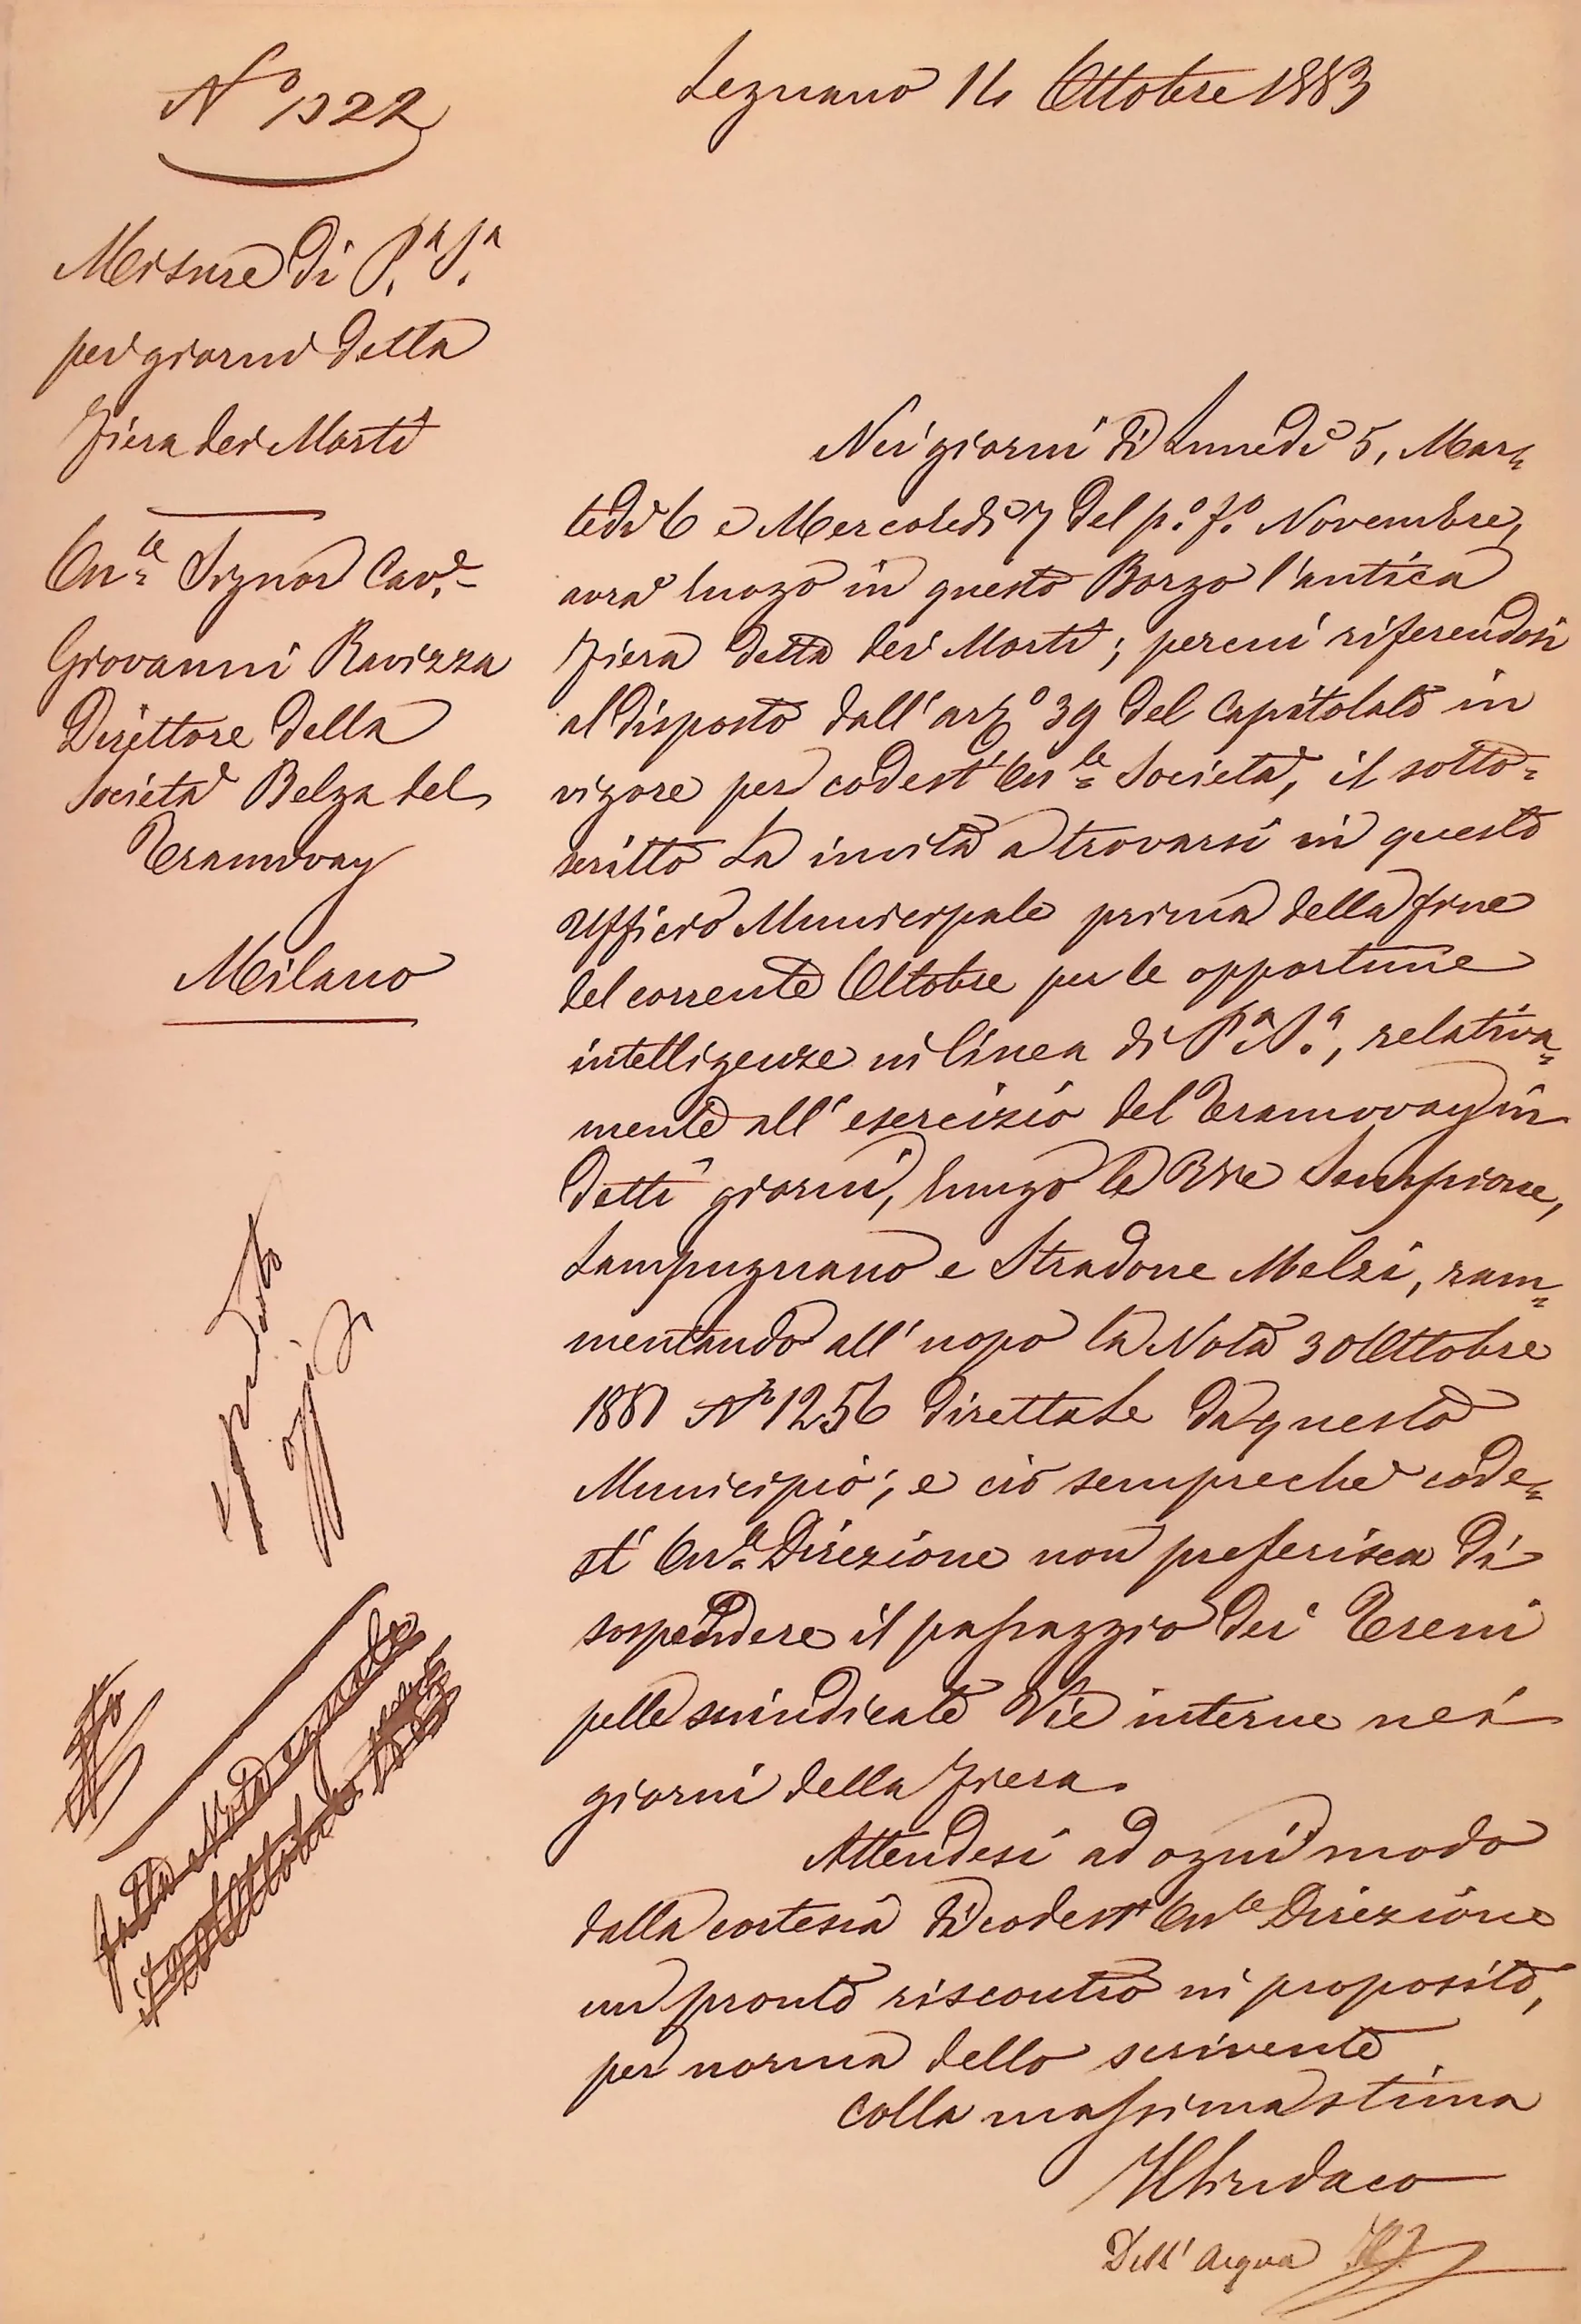 Nº 1322
Legnano 14 Ottobre 1883
Misure di P.ª S.ª
pei giorni della
Fiera dei Morti
On.le Signor Cav.e
Giovanni Ravizza
Direttore della
Società Belga del
Tramway
Milano
Nei giorni di Lunedì 5, Mar=
tedì 6 e Mercoledì 7 del p.º f.º Novembre,
avrà luogo in questo Borgo l'antica
Fiera detta dei Morti; percui riferendosi
al disposto dall'art.º 39 del Capitolato in
vigore per codest'On.le Società, il sotto=
scritto La invita a trovarsi in questo
Ufficio Municipale prima della fine
del corrente Ottobre per le opportune
intelligenze in linea di P.ª S.ª, relativa=
mente all'esercizio del Tramway in
detti giorni, lungo le Vie Sempione,
Lampugnano e Stradone Melzi, ram=
mentando all'uopo la Nota 30 Ottobre
1881 Nº 1256 direttale da questo
Municipio; e ciò sempreché code=
st'On.le Direzione non preferisca di
sospendere il passaggio dei Treni
pelle suindicate Vie interne nei
giorni della Fiera.
Attendesi ad ogni modo
dalla cortesia di codest'On.le Direzione
un pronto riscontro in proposito,
per norma dello scrivente
Colla massima stima
Il Sindaco
Dell'Acqua
Spedito
oggi
fatta Nota eguale
il Ottobre